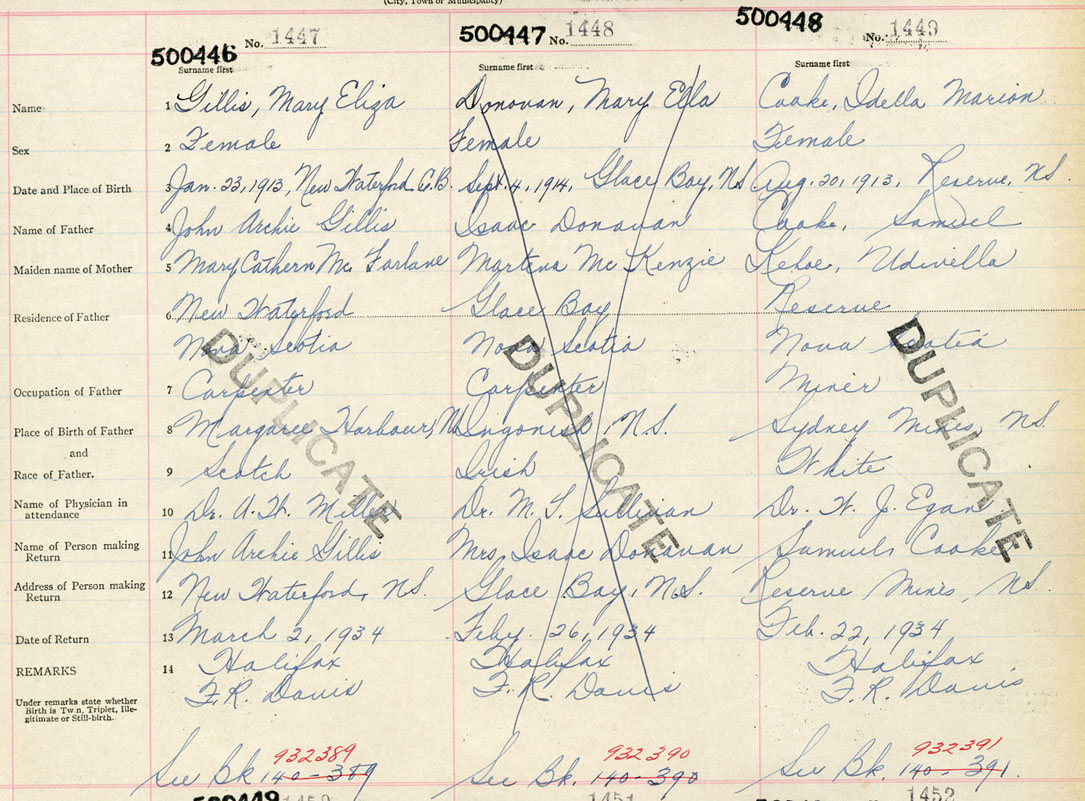 (City, Town or Municipality)
500446 No. 1447
500447 No. 1448
500448 No. 1449
Surname first
Surname first
Surname first
Name 1 Gillis, Mary Eliza Donovan, Mary Ella Cooke, Idella Marion
Sex 2 Female Female Female
Date and Place of Birth 3 Jan. 23, 1913, New Waterford C.B. Sept. 4, 1914, Glace Bay, NS Aug. 20, 1913, Reserve, NS.
Name of Father 4 John Archie Gillis Isaac Donovan Cooke, Samuel
Maiden name of Mother 5 Mary Cathern Mc Farlane Martena Mc Kenzie Kehoe, Udivella
Residence of Father 6 New Waterford Glace Bay Reserve
Nova Scotia Nova Scotia Nova Scotia
Occupation of Father 7 Carpenter Carpenter Miner
Place of Birth of Father 8 Margaree Harbour, NS Ingonish, N.S. Sydney Mines, NS.
and
Race of Father. 9 Scotch Irish White
Name of Physician in
attendance 10 Dr. A. H. Miller Dr. M. T. Sullivan Dr. W. J. Egan
Name of Person making
Return 11 John Archie Gillis Mrs. Isaac Donavan Samuel Cooke
Address of Person making
Return 12 New Waterford, NS. Glace Bay, N.S. Reserve Mines, NS.
Date of Return 13 March 2, 1934 Feby. 26, 1934 Feb. 22, 1934
REMARKS 14 Halifax Halifax Halifax
F.R. Davis F.R. Davis F.R. Davis
Under remarks state whether
Birth is Twin, Triplet, Ille-
gitimate or Still-birth.
DUPLICATE
DUPLICATE
DUPLICATE
932389 932390 932391
See Bk 140-389 See Bk. 140-390 See Bk. 140-391.
500449 1450 1451 1452